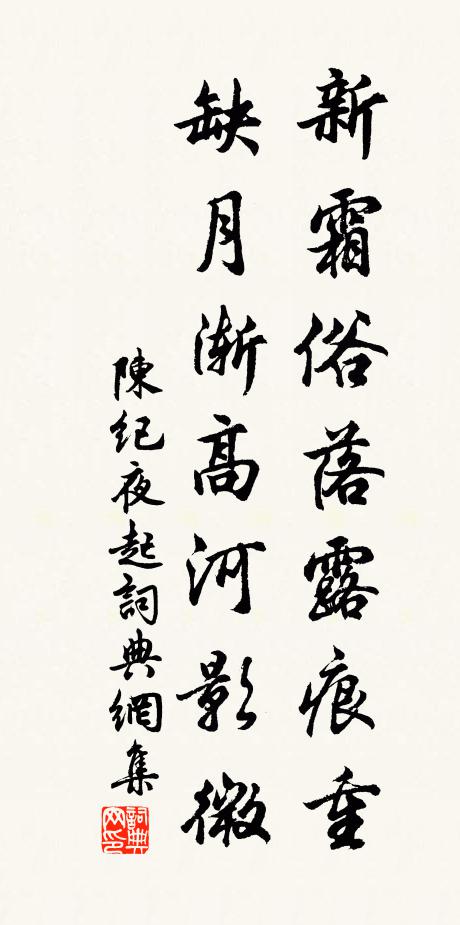 新霜俗落露痕重
缺月渐高河影微
陳纪夜起詞典網集
詞典網印